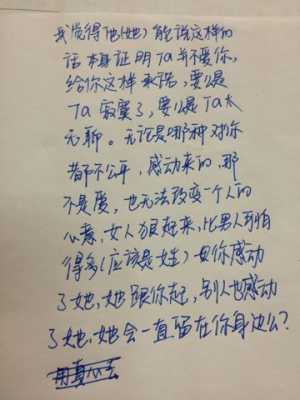 我觉得他(她)能说这样的
话本身证明TA并不爱你,
给你这样承诺,要么是
TA寂寞了,要么是TA太
无聊。无论是哪种对你
都不公平,感动来的,那
不是爱,也无法改变一个人的
心意,女人狠起来,比男人可怕
得多(应该是姓)毋你感动
了她,她跟你起,别人也感动
了她,她会一直留在你身边么?